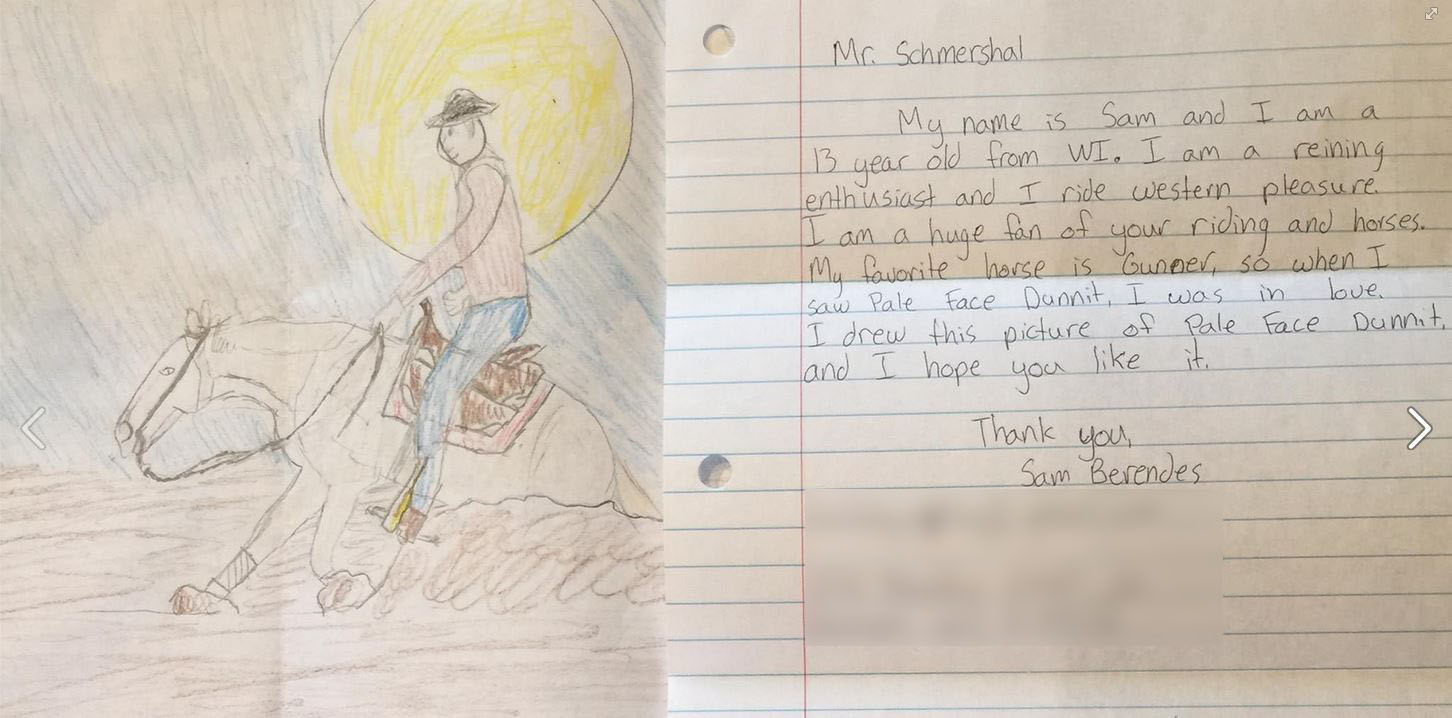 Mr. Schmershal
My name is Sam and I am a
13 year old from WI. I am a reining
enthusiast and I ride western pleasure.
I am a huge fan of your riding and horses.
My favorite horse is Gunner, so when I
saw Pale Face Dunnit, I was in love.
I drew this picture of Pale Face Dunnit,
and I hope you like it.
Thank you,
Sam Berendes